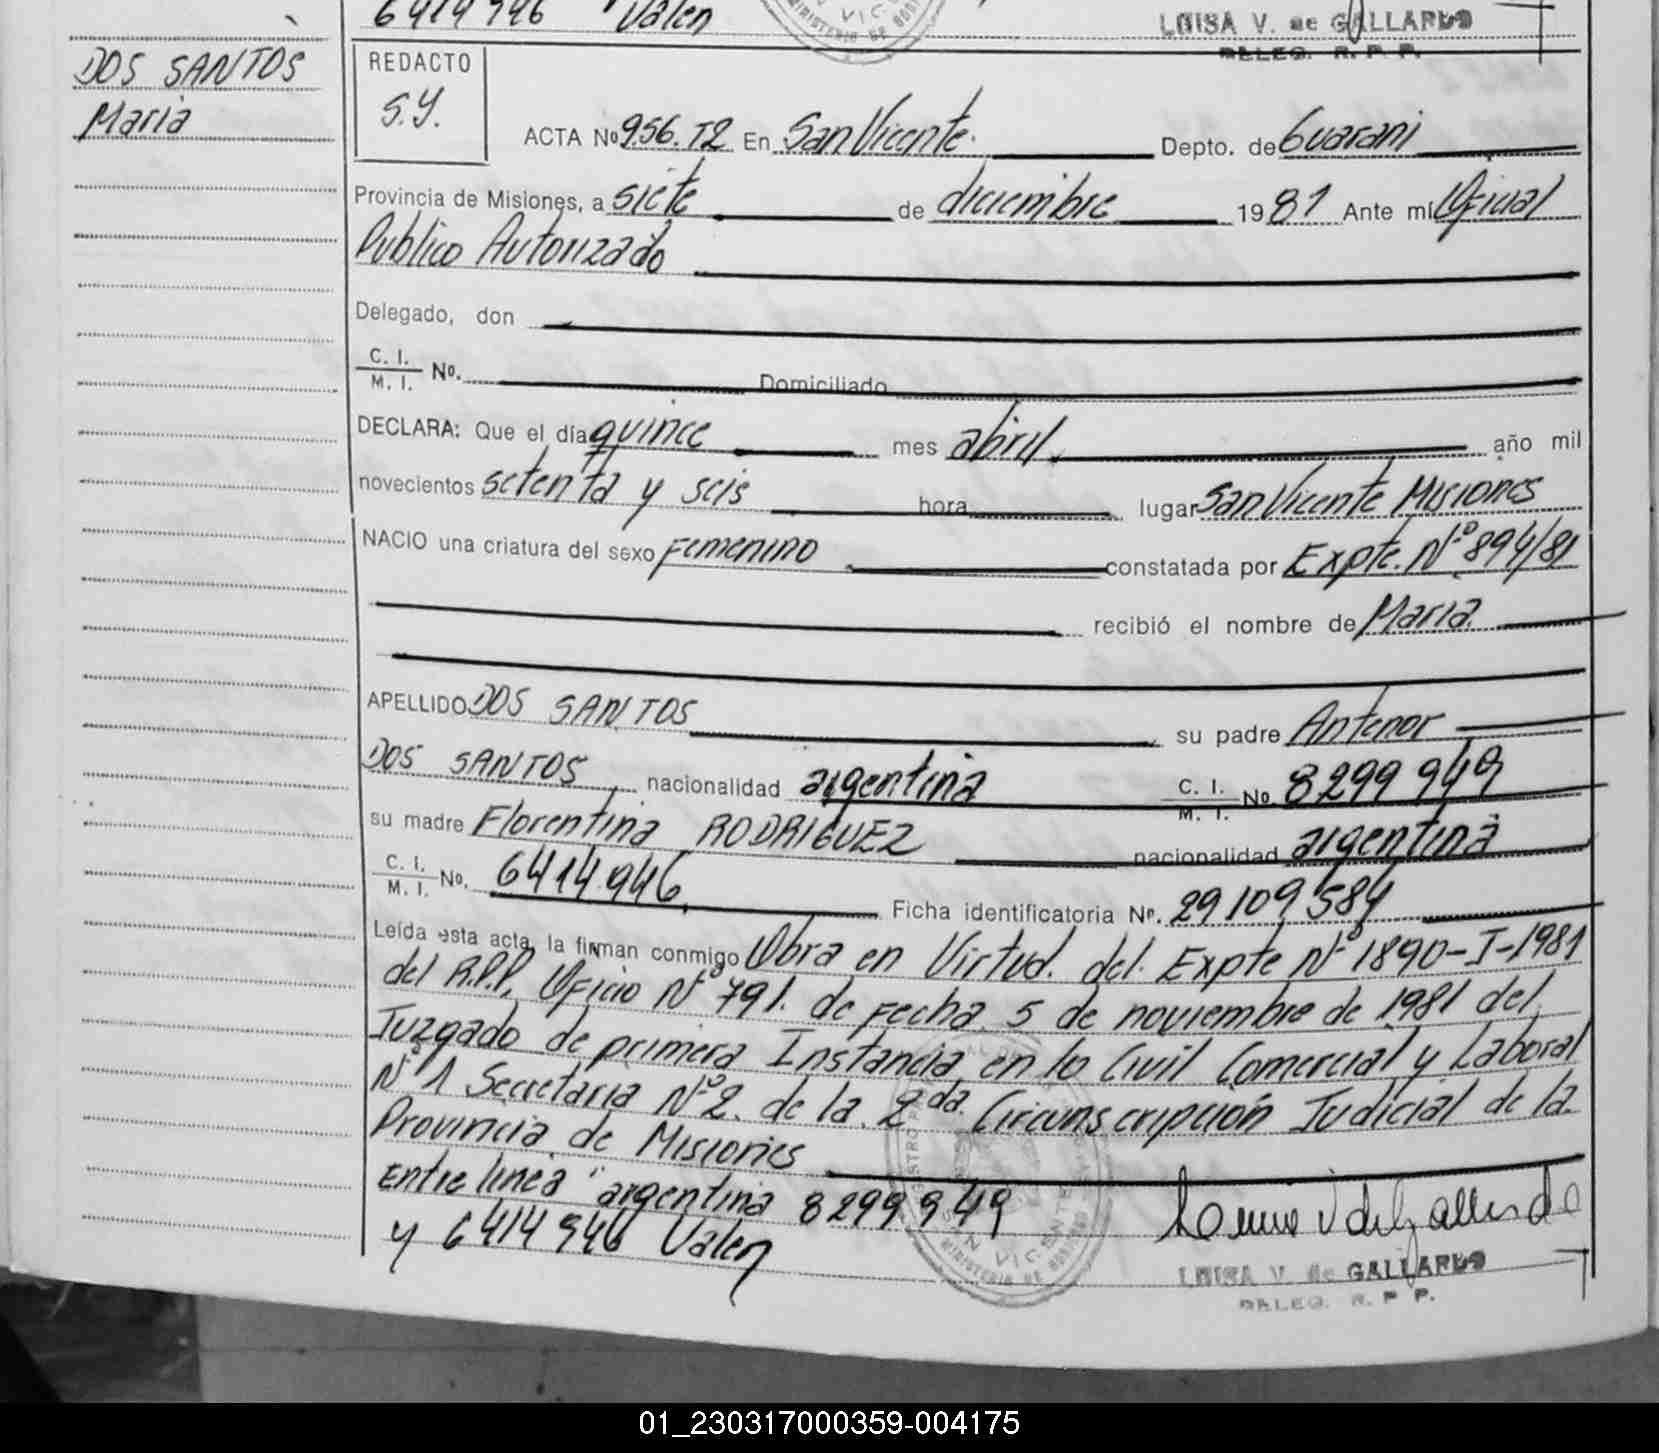 6414946 Valen
LUISA V. de GALLARDO
DELEG. R. P. P.
DOS SANTOS
Maria
REDACTO
S.Y.
ACTA Nº 956.T2 En San Vicente. Depto. de Guarani
Provincia de Misiones, a siete de diciembre 1981 Ante mí Oficial
Publico Autorizado
Delegado, don
C. I. / M. I. Nº. Domiciliado
DECLARA: Que el día quince mes abril. año mil
novecientos setenta y seis hora lugar San Vicente Misiones
NACIO una criatura del sexo Femenino constatada por Expte. Nº 894/81
recibió el nombre de Maria.
APELLIDO DOS SANTOS su padre Antenor
DOS SANTOS nacionalidad argentina C. I. / M. I. Nº 8299949
su madre Florentina RODRIGUEZ nacionalidad argentina
C. I. / M. I. Nº. 6414.946. Ficha identificatoria Nº. 29109584
Leída esta acta, la firman conmigo Obra en Virtud. del. Expte Nº 1890-I-1981
del R.P.P. Oficio Nº 791. de Fecha 5 de noviembre de 1981 del
Juzgado de primera Instancia en lo Civil Comercial y Laboral
Nº 1 Secretaria Nº 2. de la 2da. Circunscripción Judicial de la
Provincia de Misiones
Entre linea "argentina 8299949
y 6414946 Valen
SAN VICENTE
MINISTERIO DE
LUISA V. de GALLARDO
DELEG. R. P. P.
01_230317000359-004175